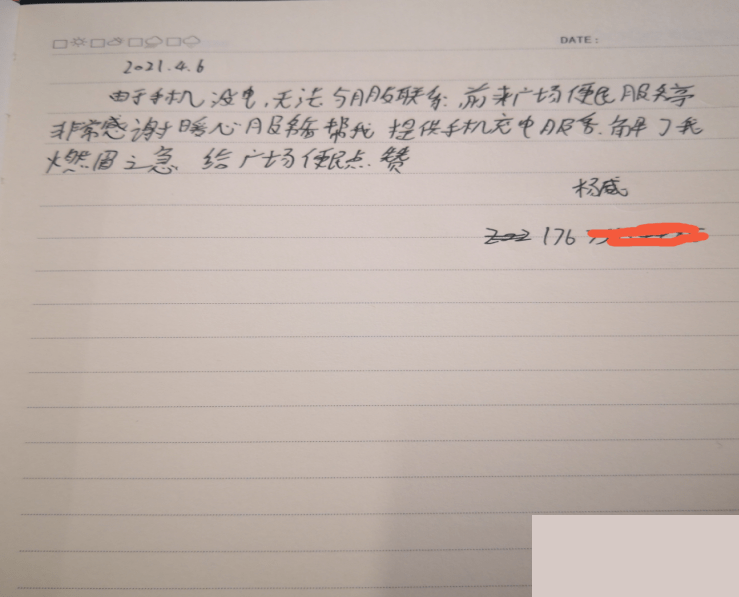 DATE:
2021.4.6
由于手机没电,无法与朋友联系.前来广场便民服务亭
非常感谢暖心服务帮我提供手机充电服务.解了我
燃眉之急 给广场便民点赞
杨威
176